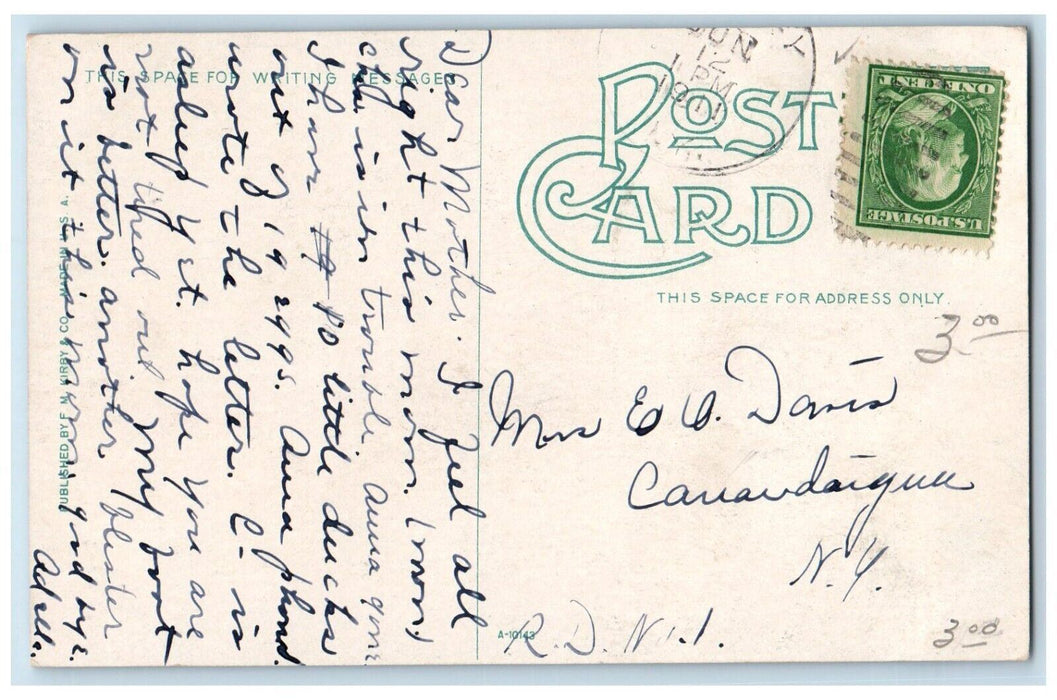 THIS SPACE FOR WRITING MESSAGES
Dear Mother. I feel all
right this morn. (morn)
is in trouble. Anna gone
I have 80 little ducks
out of 192 eggs. Anna phond.
wrote the letter. C- is
asleep yet. hope you are
not tiped out. My foot
is better. another blister
on it this morn. good bye.
Adella.
PUBLISHED BY F. M. KIRBY & CO. MADE IN U. S. A.
POST
CARD
JUN
12
PM
1911
ONE CENT
U.S. POSTAGE
THIS SPACE FOR ADDRESS ONLY.
3.00
Mrs E C. Davis
Canandaigua
N. Y.
A-10143
R. D. No 1.
3.00